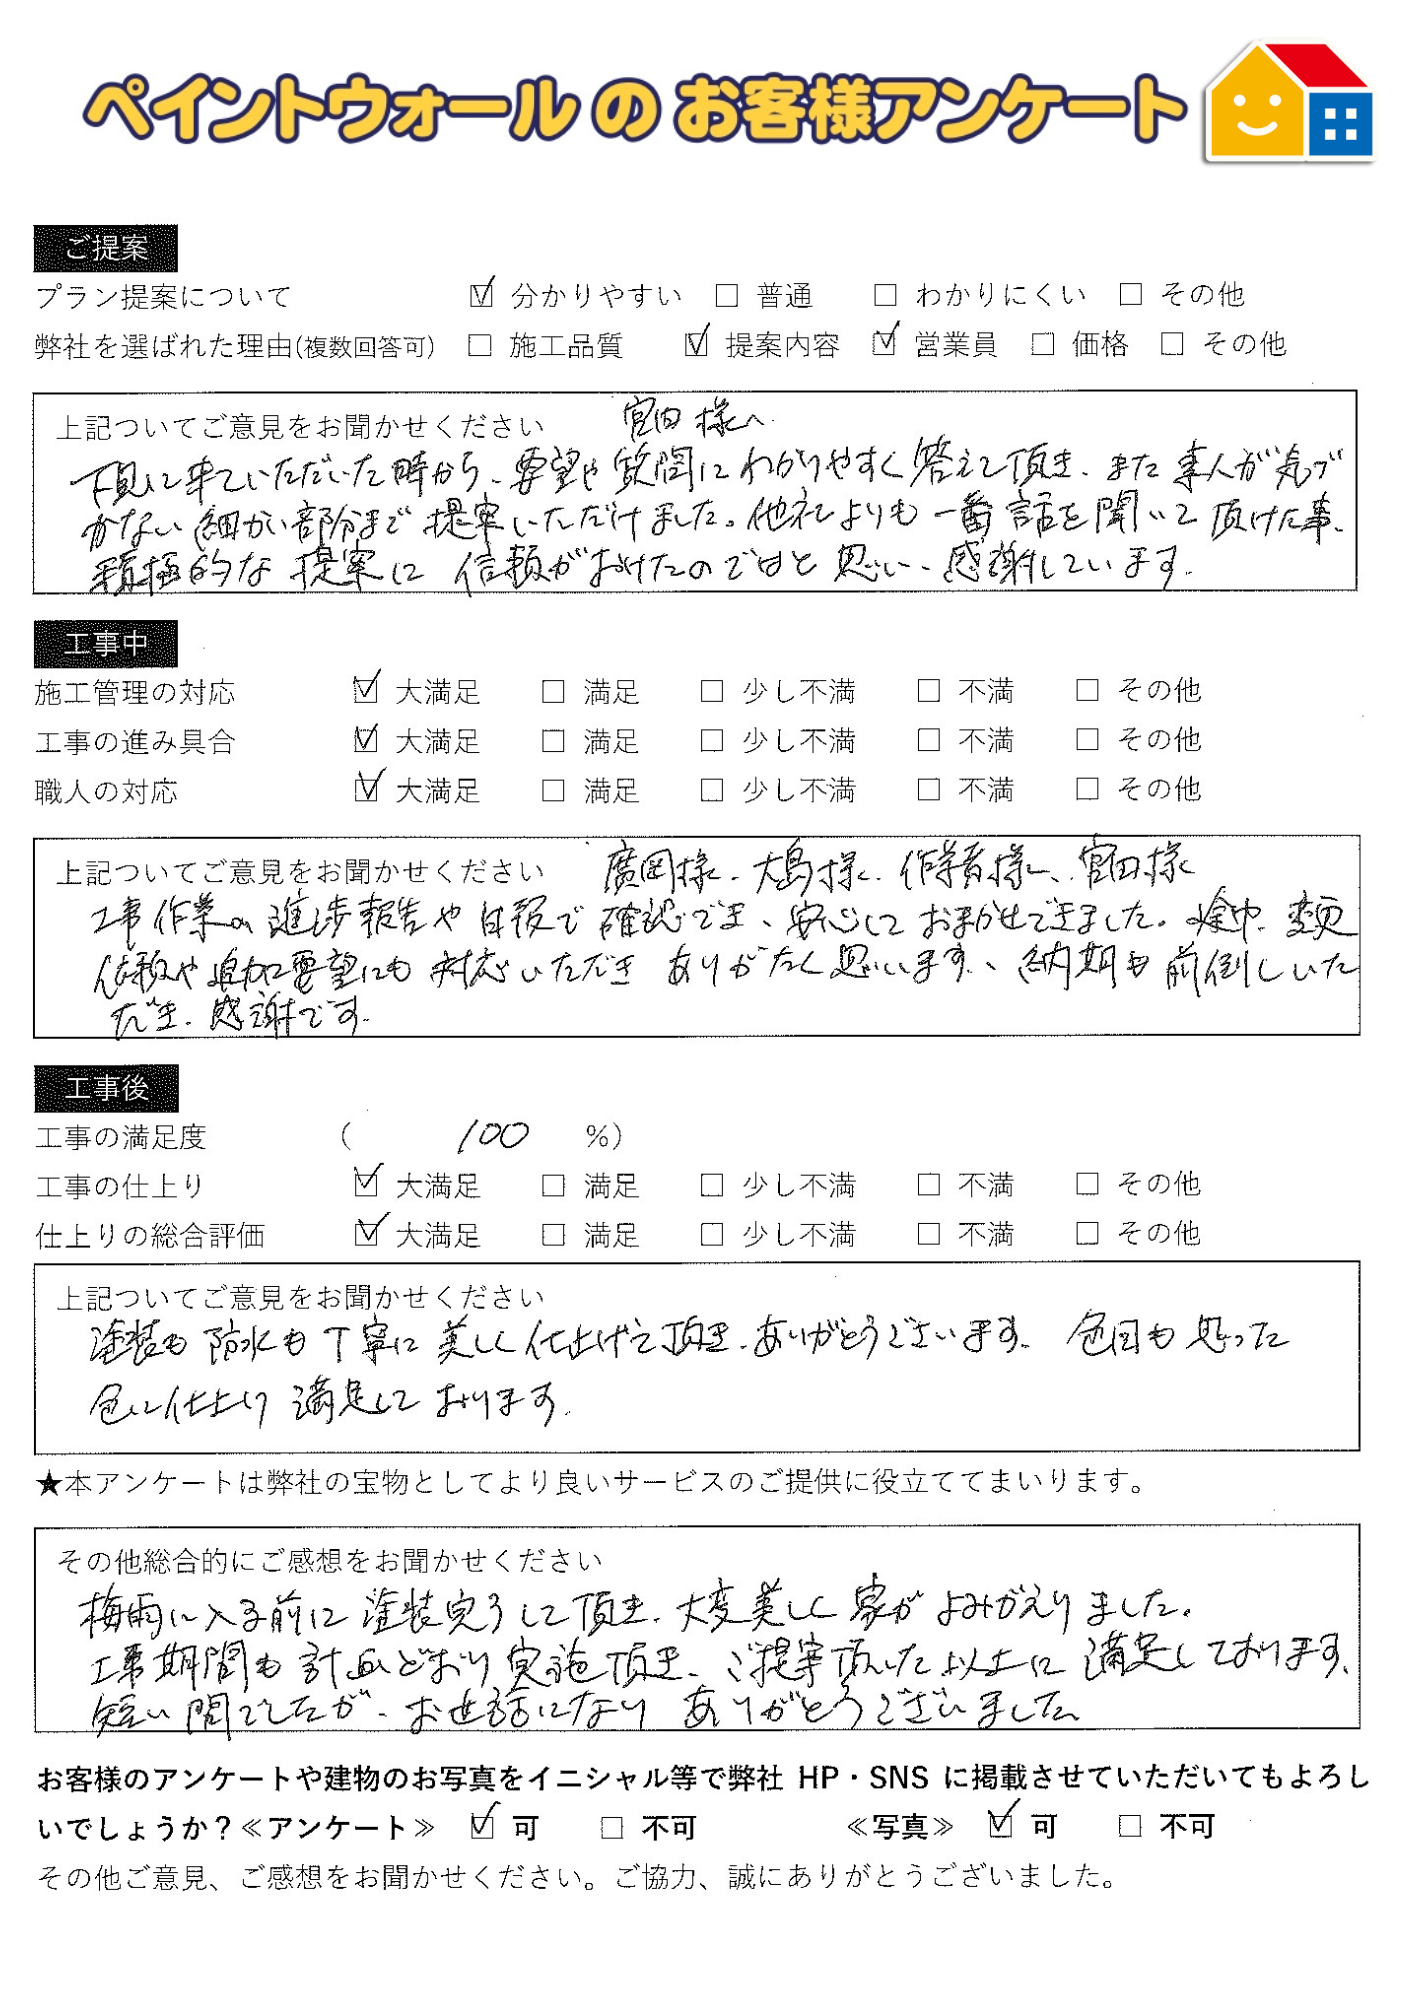 ペイントウォール の お客様アンケート
ご提案
プラン提案について ☑ 分かりやすい □ 普通 □ わかりにくい □ その他
弊社を選ばれた理由(複数回答可) □ 施工品質 ☑ 提案内容 ☑ 営業員 □ 価格 □ その他
上記ついてご意見をお聞かせください 宮田様へ
下見に来ていただいた時から、要望や質問にわかりやすく答えて頂き、また素人が気づ
かない細かい部分まで提案いただけました。他社よりも一番話を聞いて頂けた事、
積極的な提案に信頼がおけたのではと思い、感謝しています。
工事中
施工管理の対応 ☑ 大満足 □ 満足 □ 少し不満 □ 不満 □ その他
工事の進み具合 ☑ 大満足 □ 満足 □ 少し不満 □ 不満 □ その他
職人の対応 ☑ 大満足 □ 満足 □ 少し不満 □ 不満 □ その他
上記ついてご意見をお聞かせください 廣岡様、大島様、作業者様へ、宮田様
工事作業の進捗報告や日報で確認でき、安心しておまかせできました。途中、変更
依頼や追加要望にも対応いただきありがたく思います、納期も前倒しいた
だき、感謝です。
工事後
工事の満足度 ( 100 %)
工事の仕上り ☑ 大満足 □ 満足 □ 少し不満 □ 不満 □ その他
仕上りの総合評価 ☑ 大満足 □ 満足 □ 少し不満 □ 不満 □ その他
上記ついてご意見をお聞かせください
塗装も防水も丁寧に美しく仕上げて頂き、ありがとうございます。色目も思った
色に仕上り満足しております。
★本アンケートは弊社の宝物としてより良いサービスのご提供に役立ててまいります。
その他総合的にご感想をお聞かせください
梅雨に入る前に塗装完了して頂き、大変美しく家がよみがえりました。
工事期間も計画どおり実施頂き、ご提案頂いた以上に満足しております。
短い間でしたが、お世話になりありがとうございました
お客様のアンケートや建物のお写真をイニシャル等で弊社 HP・SNS に掲載させていただいてもよろし
いでしょうか？≪アンケート≫ ☑ 可 □ 不可 ≪写真≫ ☑ 可 □ 不可
その他ご意見、ご感想をお聞かせください。ご協力、誠にありがとうございました。